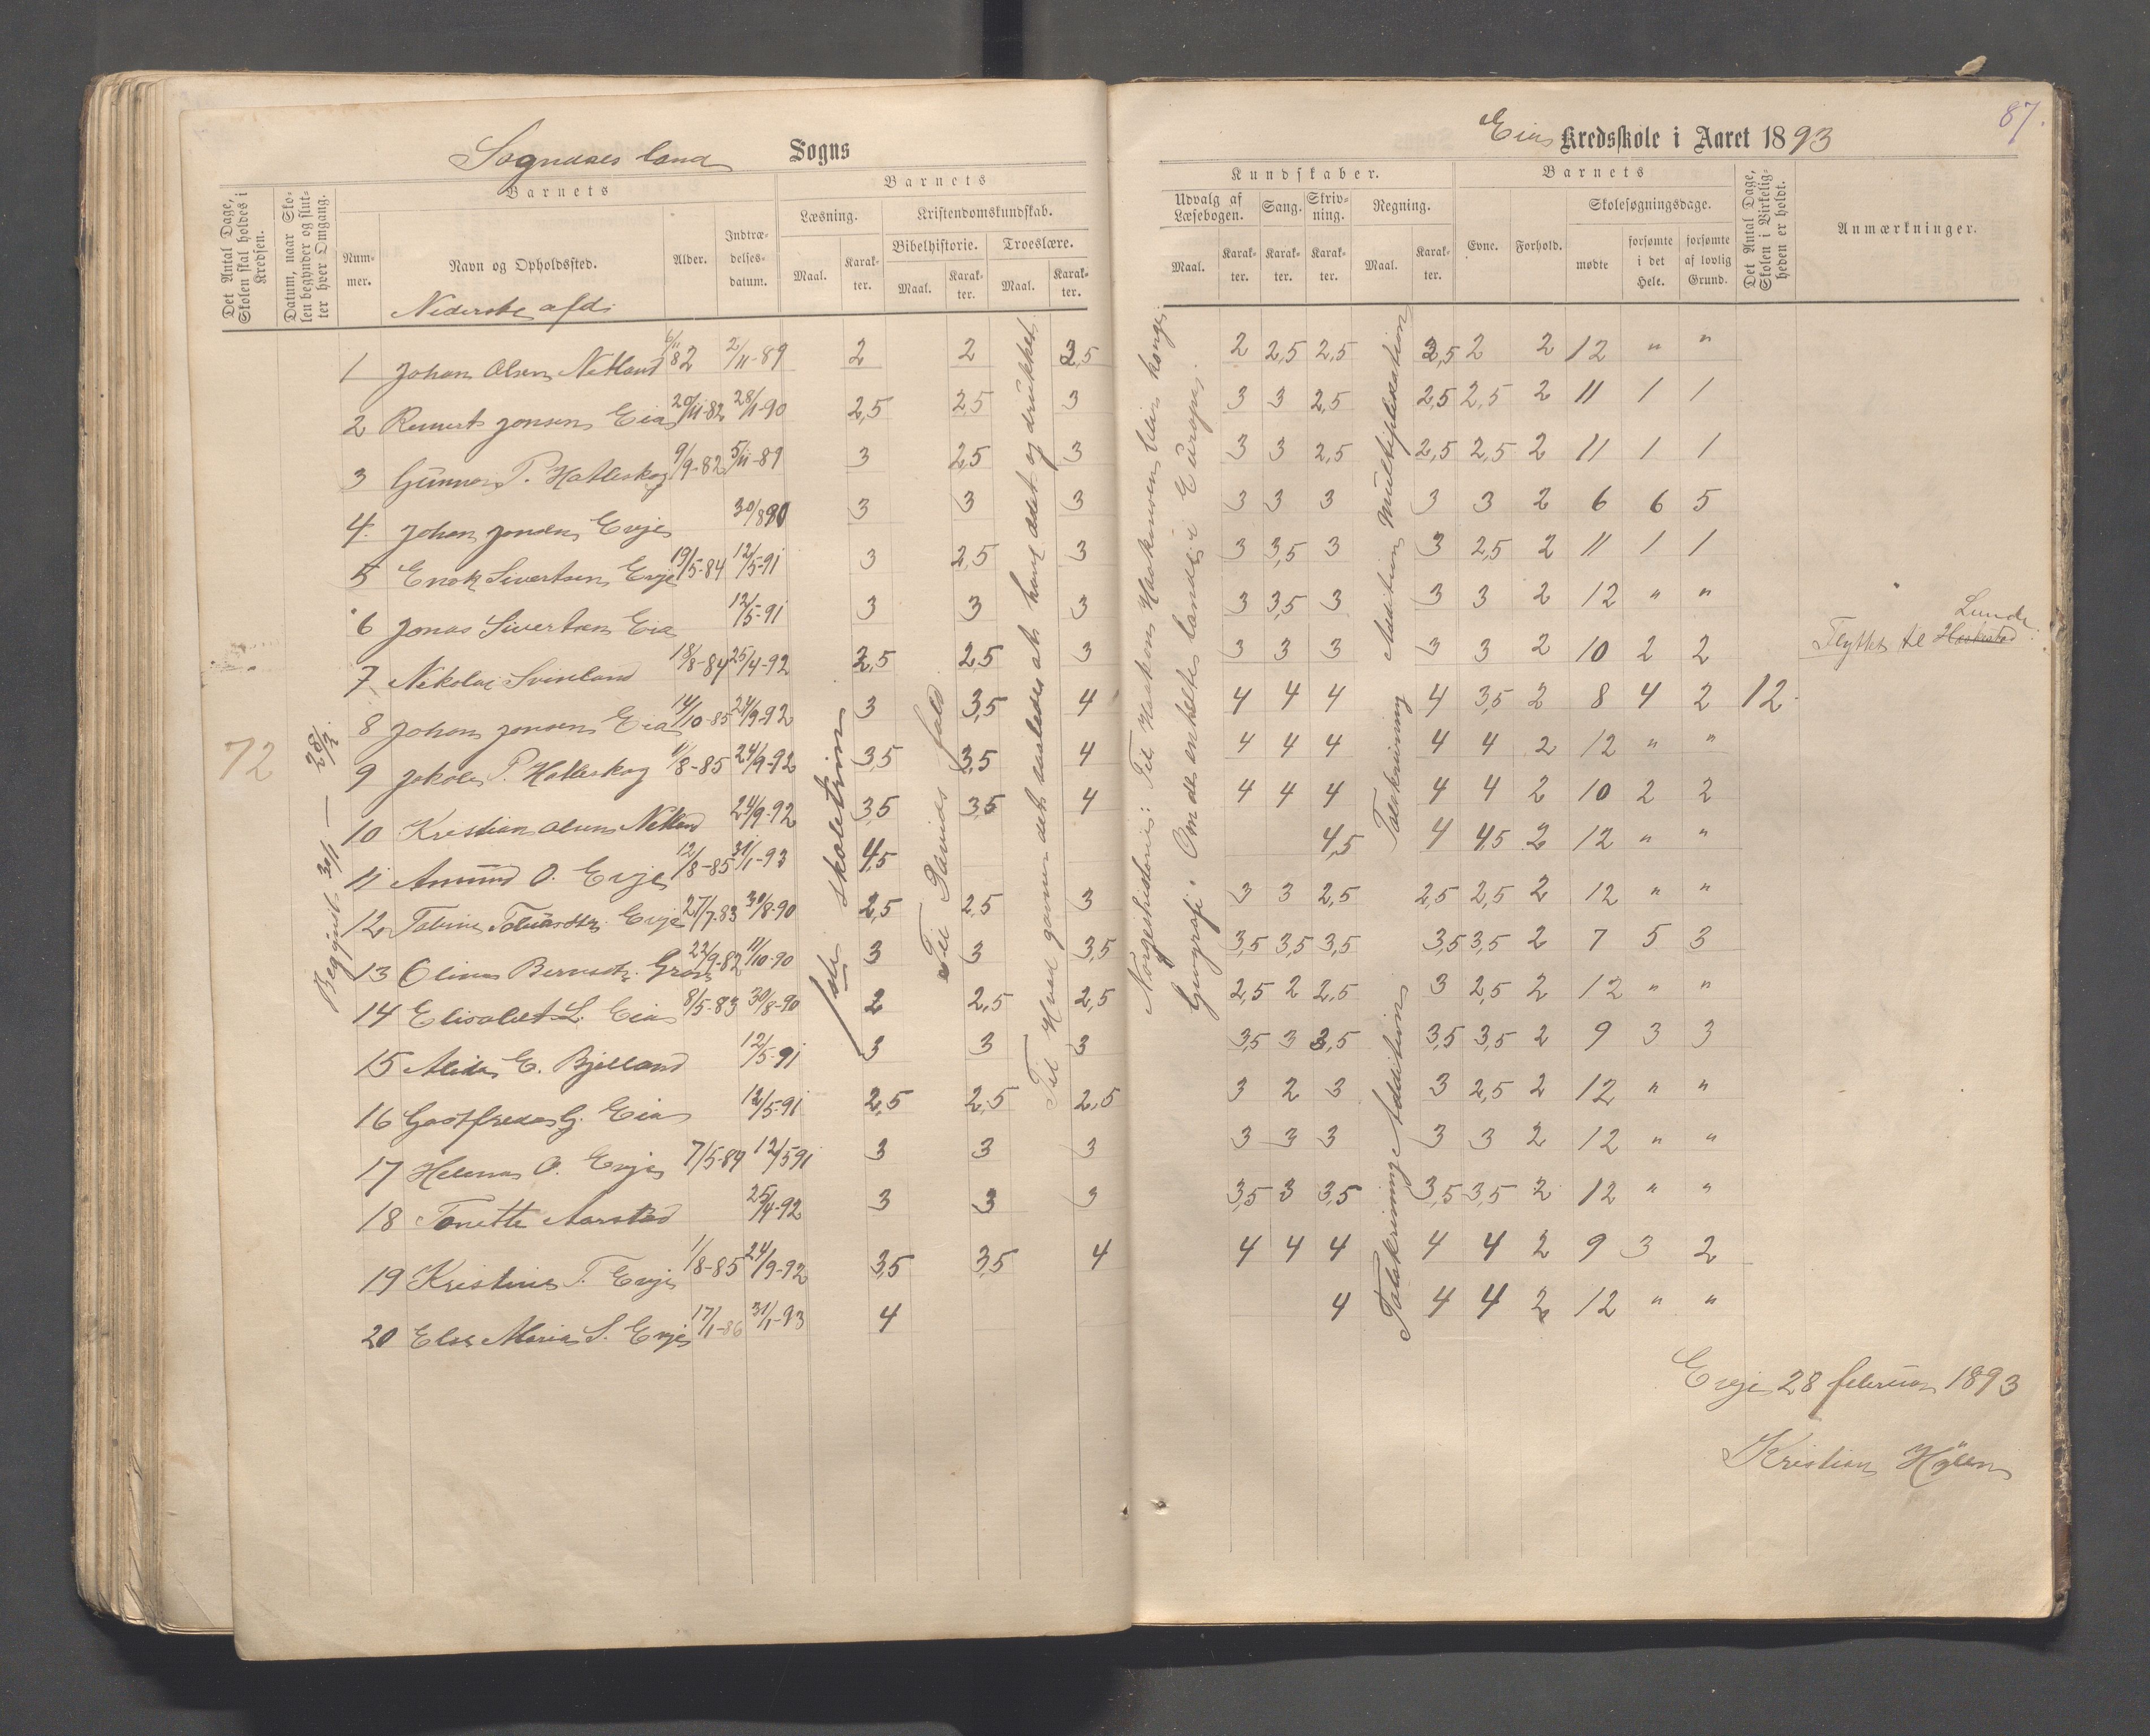 87.
Sogndals land Sogns
Eia Kredsskole i Aaret 1893
Det Antal Dage, Skolen skal holdes i Kredsen.
Datum, naar Skolen begynder og slutter hver Omgang.
Barnets
Nummer.
Navn og Opholdssted.
Alder.
Indtrædelsesdatum.
Barnets
Læsning.
Maal.
Karakter.
Kristendomskundskab.
Bibelhistorie.
Maal.
Karakter.
Troeslære.
Maal.
Karakter.
Kundskaber.
Udvalg af Læsebogen.
Maal.
Karakter.
Sang.
Karakter.
Skrivning.
Karakter.
Regning.
Maal.
Karakter.
Barnets
Evne.
Forhold.
Skolesøgningsdage.
mødte
forsømte i det Hele.
forsømte af lovlig Grund.
Det Antal Dage, Skolen i Virkeligheden er holdt.
Anmærkninger.
Nederste afd.
1 Johan Olsen Netland 6/11 82 2/11-89 2 2 2,5 2 2,5 2,5 2,5 2 2 12 " "
2 Reinert Jonsen Eia 20/11-82 28/1-90 2,5 2,5 3 3 3 2,5 2,5 2,5 2 11 1 1
3 Gunnar P. Hatleskog 9/9-82 5/11-89 3 2,5 3 3 3 2,5 2,5 2,5 2 11 1 1
4. Johan Jonsen Evje 30/8 90 3 3 3 3 3 3 3 3 2 6 6 5
5 Enok Sivertsen Evje 19/5-84 12/5-91 3 2,5 3 3 3,5 3 3 2,5 2 11 1 1
6 Jonas Sivertsen Eia 12/5-91 3 3 3 3 3,5 3 3 3 2 12 " "
7 Nikolai Svinland 18/8-84 25/4-92 2,5 2,5 3 3 3 3 3 3 2 10 2 2 Flyttet til Haakestad Lunde
8 Johan Jonsen Eia 14/10-85 24/9-92 3 3,5 4 4 4 4 4 3,5 2 8 4 2 12.
9 Jakob P. Hatleskog 1/8-85 24/9-92 3,5 3,5 4 4 4 4 4 4 2 12 " "
10 Kristian Olsen Netland 24/9-92 3,5 3,5 4 4 4 4 4 4 2 10 2 2
11 Amund O. Evje 12/8-85 31/1-93 4,5 4,5 4 4,5 2 12 " "
12 Tobine Tobiasdtr. Evje 27/7-83 30/8-90 2,5 2,5 3 3 3 2,5 2,5 2,5 2 12 " "
13 Oline 22/9-82 11/10-90 3 3 3,5 3,5 3,5 3,5 3,5 3,5 2 7 5 3
14 Elisabet L. Eia 8/5-83 30/8-90 2 2,5 2,5 2,5 2 2,5 3 2,5 2 12 " "
15 Alida E. Bjelland 12/5-91 3 3 3 3,5 3 3,5 3,5 3,5 2 9 3 3
16 G. Eia 12/5-91 2,5 2,5 2,5 3 2 3 3 2,5 2 12 " "
17 Helena O. Evje 7/5-84 12/5 91 3 3 3 3 3 3 3 3 2 12 " "
18 Tonette Aarstad 25/4-92 3 3 3 3,5 3 3,5 3,5 3,5 2 12 " "
19 Kristine T. Evje 1/8-85 24/9-92 3,5 3,5 4 4 4 4 4 4 2 9 3 2
20 Else Maria S. Evje 17/1-86 31/1-93 4 4 4 4 2 12 " "
72
Begyndt 30/1 — 28/2
1ste skoletrin
Til Davids fald
Til Hvad gavner det saaledes at have ædt og drukket
Norgeshistorie: Til Haakon Haakonsen blev konge.
Geografi. Om de enkelte lande i Europa.
Addition Multiplikation
Talskrivning
Talskrivning Addition
Evje 28 februar 1893
Kristian Hølen